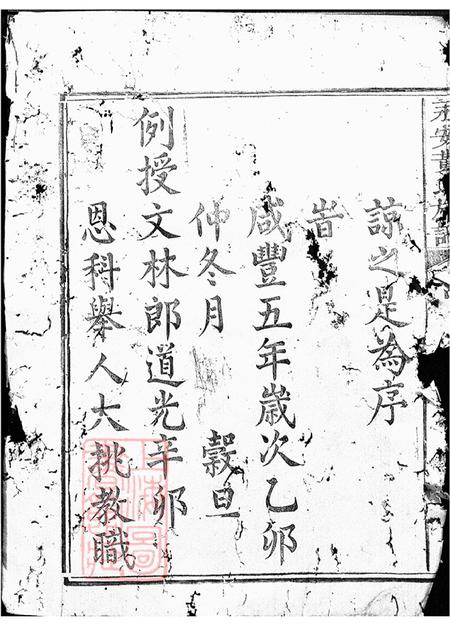 諒之是為序
旹
咸豐五年歲次乙卯
仲冬月 穀旦
例授文林郎道光辛卯
恩科舉人大挑教職